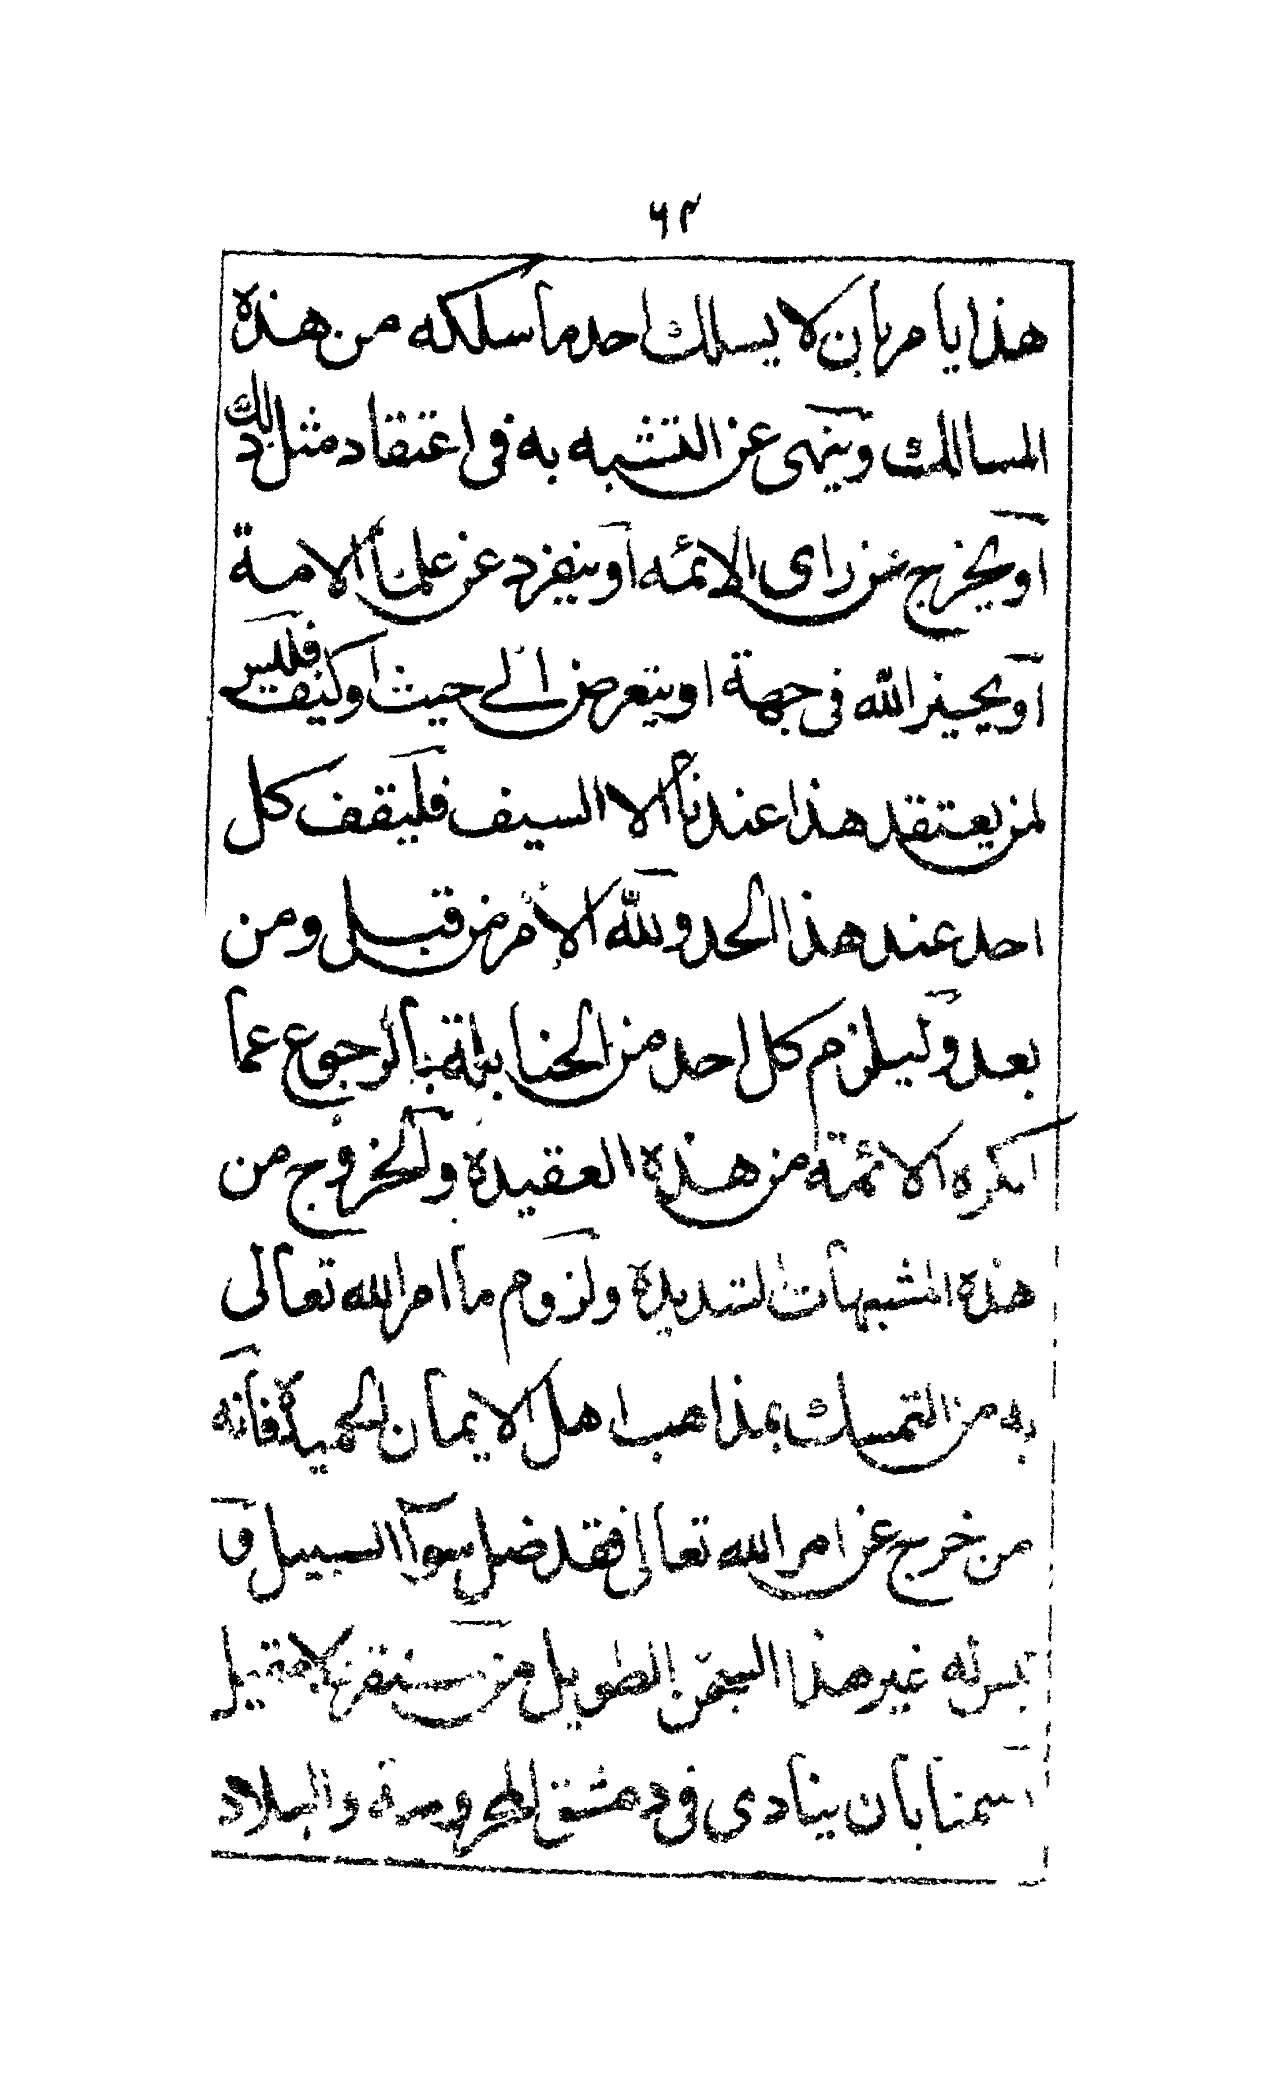 ٦٣
هذا يامر بان لا يسلك احد ما سلكه من هذه
المسالك وينهى عن التشبه به فى اعتقاد مثل ذلك
او يخرج عن راى الائمه او ينفرد عن علمنا الامة
او يحيز الله فى جهة او يتعرض الى حيث او كيف فليس
لمن يعتقد هذا عندنا الا السيف فليقف كل
احد عند هذا الحد ولله الامر من قبل ومن
بعد وليلزم كل احد من الحنابلة بالرجوع عما
انكره الائمة من هذه العقيدة والخروج من
هذه المشبهات الشديدة ولزوم ما امر الله تعالى
به من التمسك بمذاهب اهل الايمان الحميدة فانه
من خرج عن امر الله تعالى فقد ضل سوآ السبيل و
ليس له غير هذا السجن الطويل من مستقر ولا مقيل
رسمنا بان ينادى فى دمشق المحروسة والبلاد